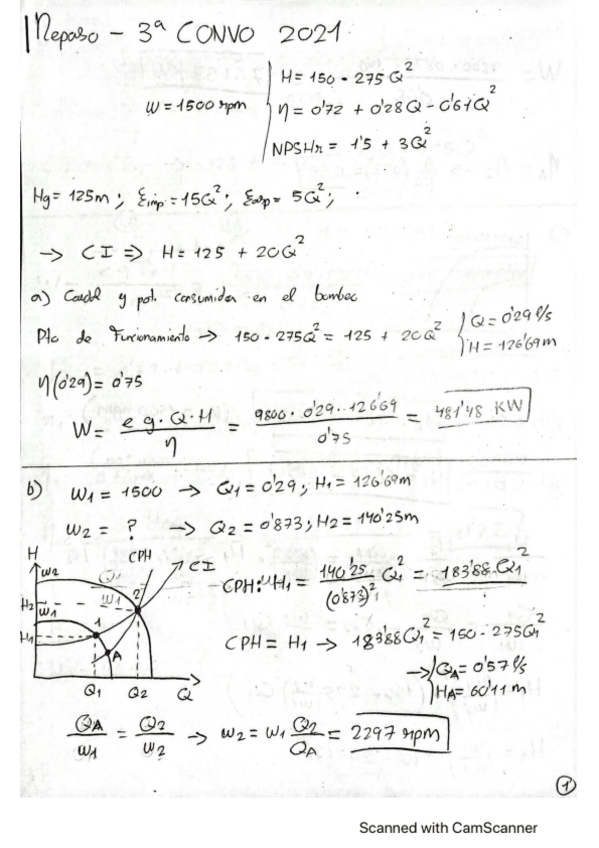 Repaso - 3ª CONVO 2021
H = 150 - 275Q²
W = 1500 rpm
η = 0'72 + 0'28Q - 0'61Q²
NPSHr = 1'5 + 3Q²
Hg = 125m ; ξimp = 15Q² ; ξasp = 5Q² ;
→ CI ⇒ H = 125 + 20Q²
a) Caudal y pot. consumida en el bombeo
Pto de Funcionamiento → 150 - 275Q² = 125 + 20Q² { Q = 0'29 ℓ/s
H = 126'69m
η(0'29) = 0'75
W = e g · Q · H / η = 9800 · 0'29 · 126'69 / 0'75 = 481'48 KW
b) W1 = 1500 → Q1 = 0'29 ; H1 = 126'69m
W2 = ? → Q2 = 0'873 ; H2 = 140'25m
H CPH CI
W2
H2 W1 2
H1 1
A
Q1 Q2 Q
CPH: H1 = 140'25 / (0'873)² Q1² = 183'88 Q1²
CPH = H1 → 183'88Q1² = 150 - 275Q1²
→ { QA = 0'57 ℓ/s
HA = 60'11 m
QA / W1 = Q2 / W2 → W2 = W1 Q2 / QA = 2297 rpm
1
Scanned with CamScanner